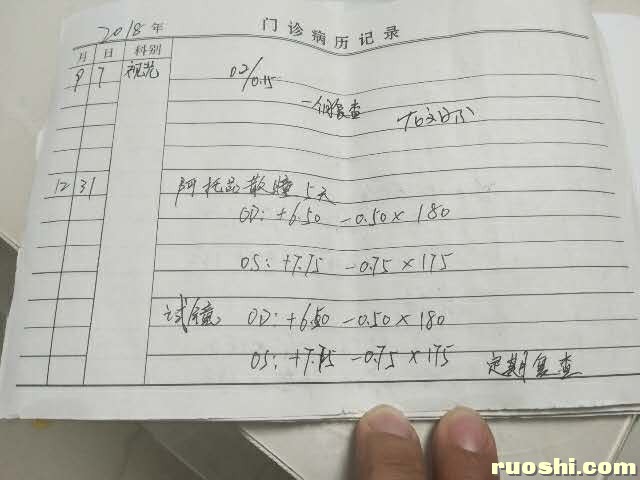 2018年 门诊病历记录
月 日 科别
9 7 视光 02/0.15
一个月复查
12 31 阿托品散瞳5天
OD: +6.50 -0.50×180
OS: +7.75 -0.75×175
试镜 OD: +6.50 -0.50×180
OS: +7.75 -0.75×175 定期复查
ruoshi.com